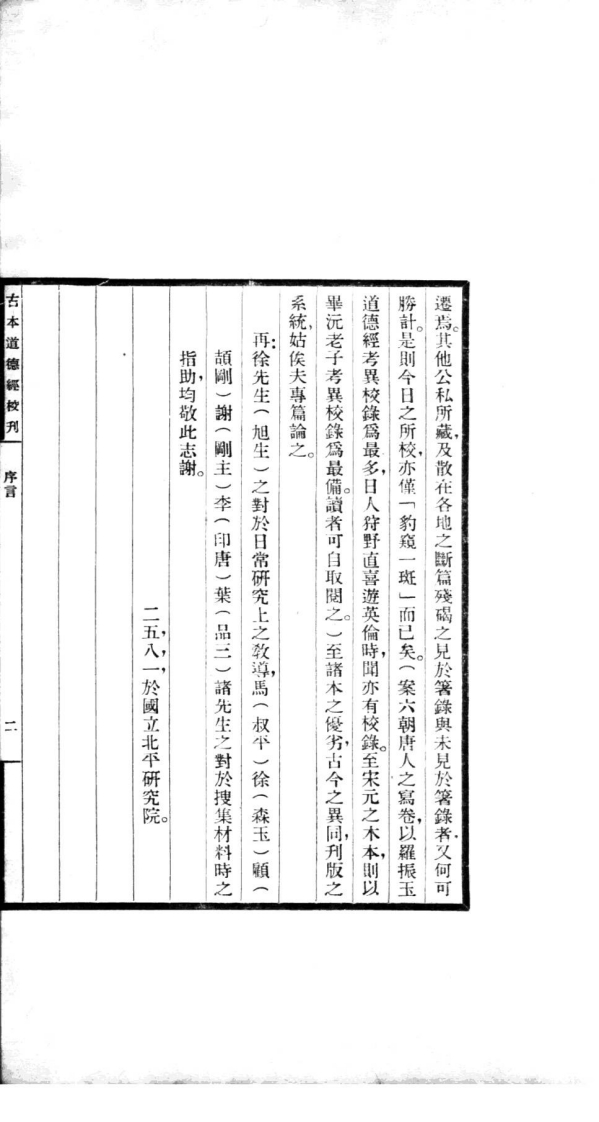 遷焉。其他公私所藏，及散在各地之斷篇殘碣之見於箸錄與未見於箸錄者，又何可
勝計。是則今日之所校，亦僅「豹窺一斑」而已矣。（案六朝唐人之寫卷，以羅振玉
道德經考異校錄爲最多，日人狩野直喜遊英倫時，聞亦有校錄。至宋元之木本，則以
畢沅老子考異校錄爲最備。讀者可自取閱之。）至諸本之優劣，古今之異同，刊版之
系統，姑俟夫專篇論之。
再：徐先生（旭生）之對於日常研究上之敎導，馬（叔平）徐（森玉）顧（
頡剛）謝（剛主）李（印唐）葉（品三）諸先生之對於搜集材料時之
指助，均敬此志謝。
二五，八，一，於國立北平研究院。
古本道德經校刊
序言
二